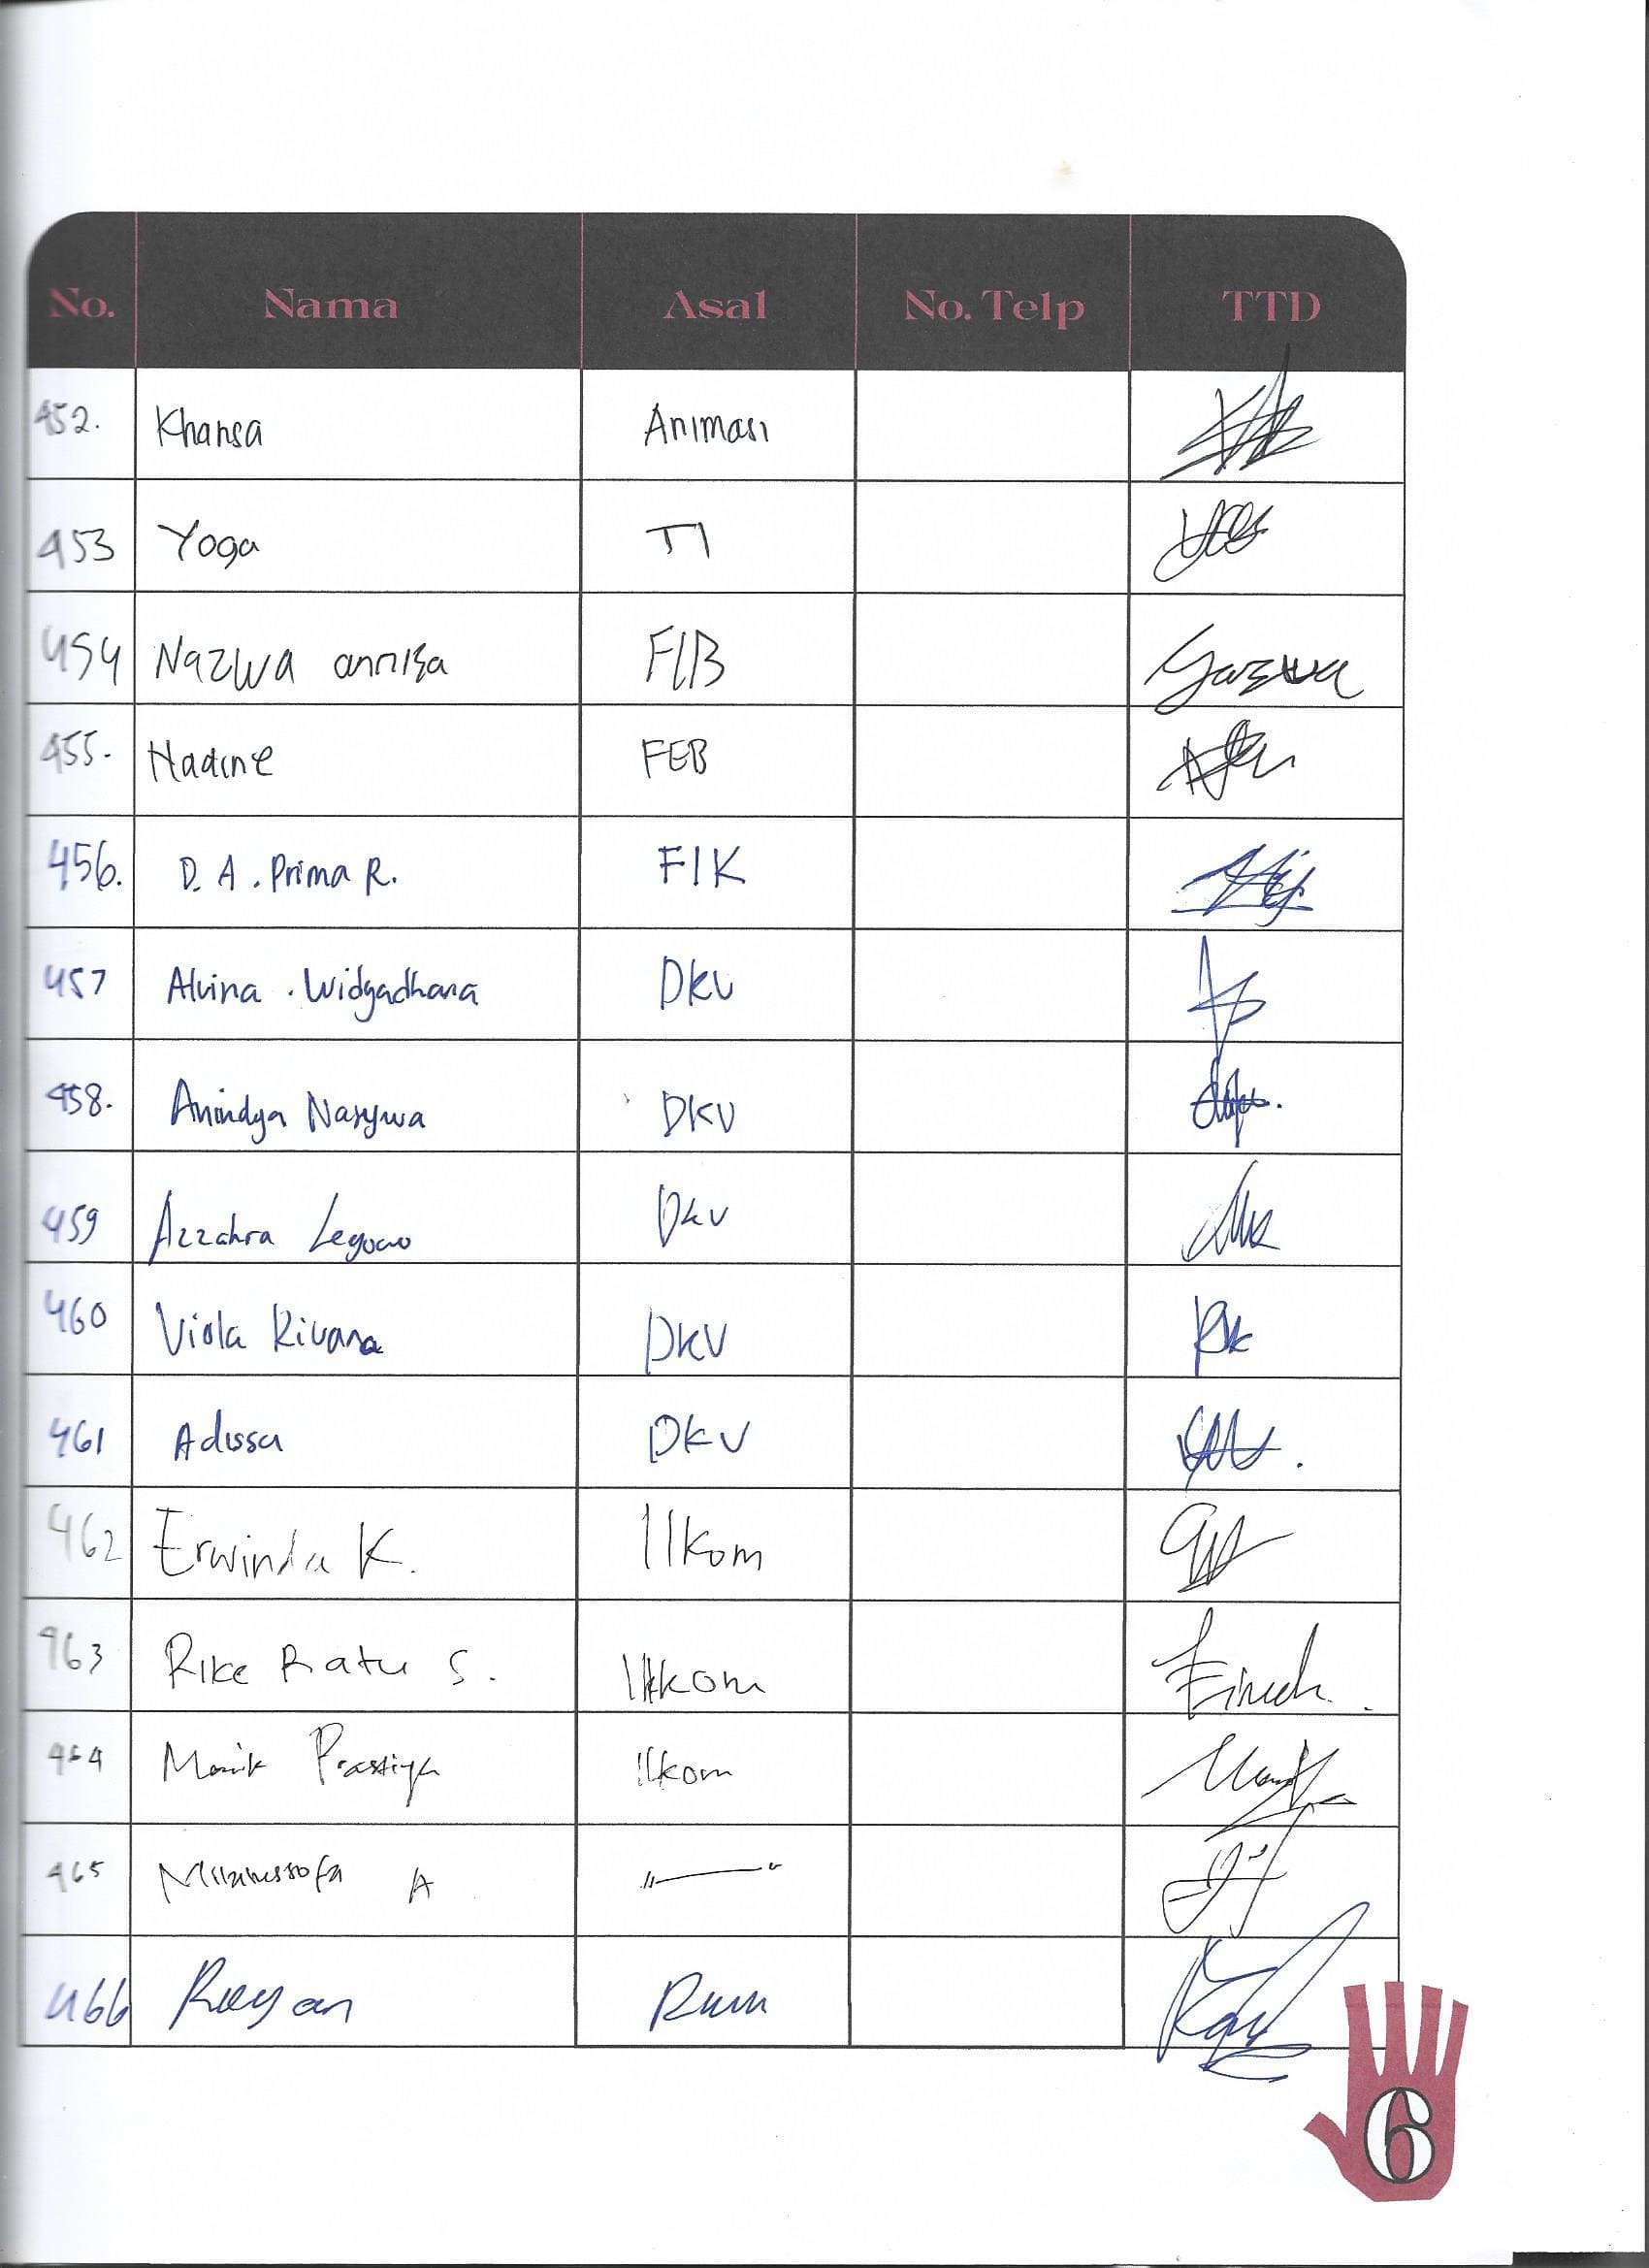 No. Nama Asal No. Telp TTD
452. Khansa Animasi
453 Yoga TI
454 Nazwa annisa FIB
455. Nadine FEB
456. D. A. Prima R. FIK
457 Alvina . Widyadhana DKV
458. Anindya Nasywa DKV
459 Azzahra Legowo DKV
460 Viola Rivana DKV
461 Adissa DKV
462 Erwinda K. Ilkom
463 Rike Ratu S. Ilkom
464 Manik Ilkom
465 A "—"
466 Rayan
6